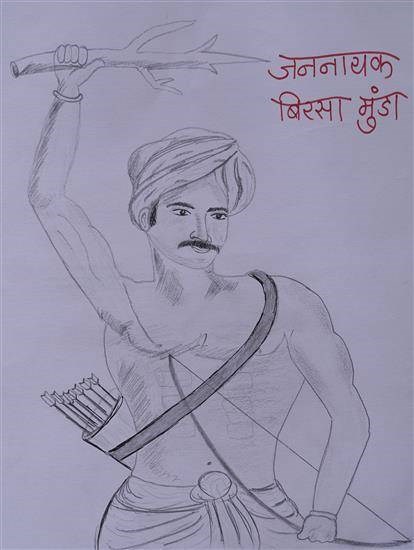 जननायक
बिरसा मुंडा